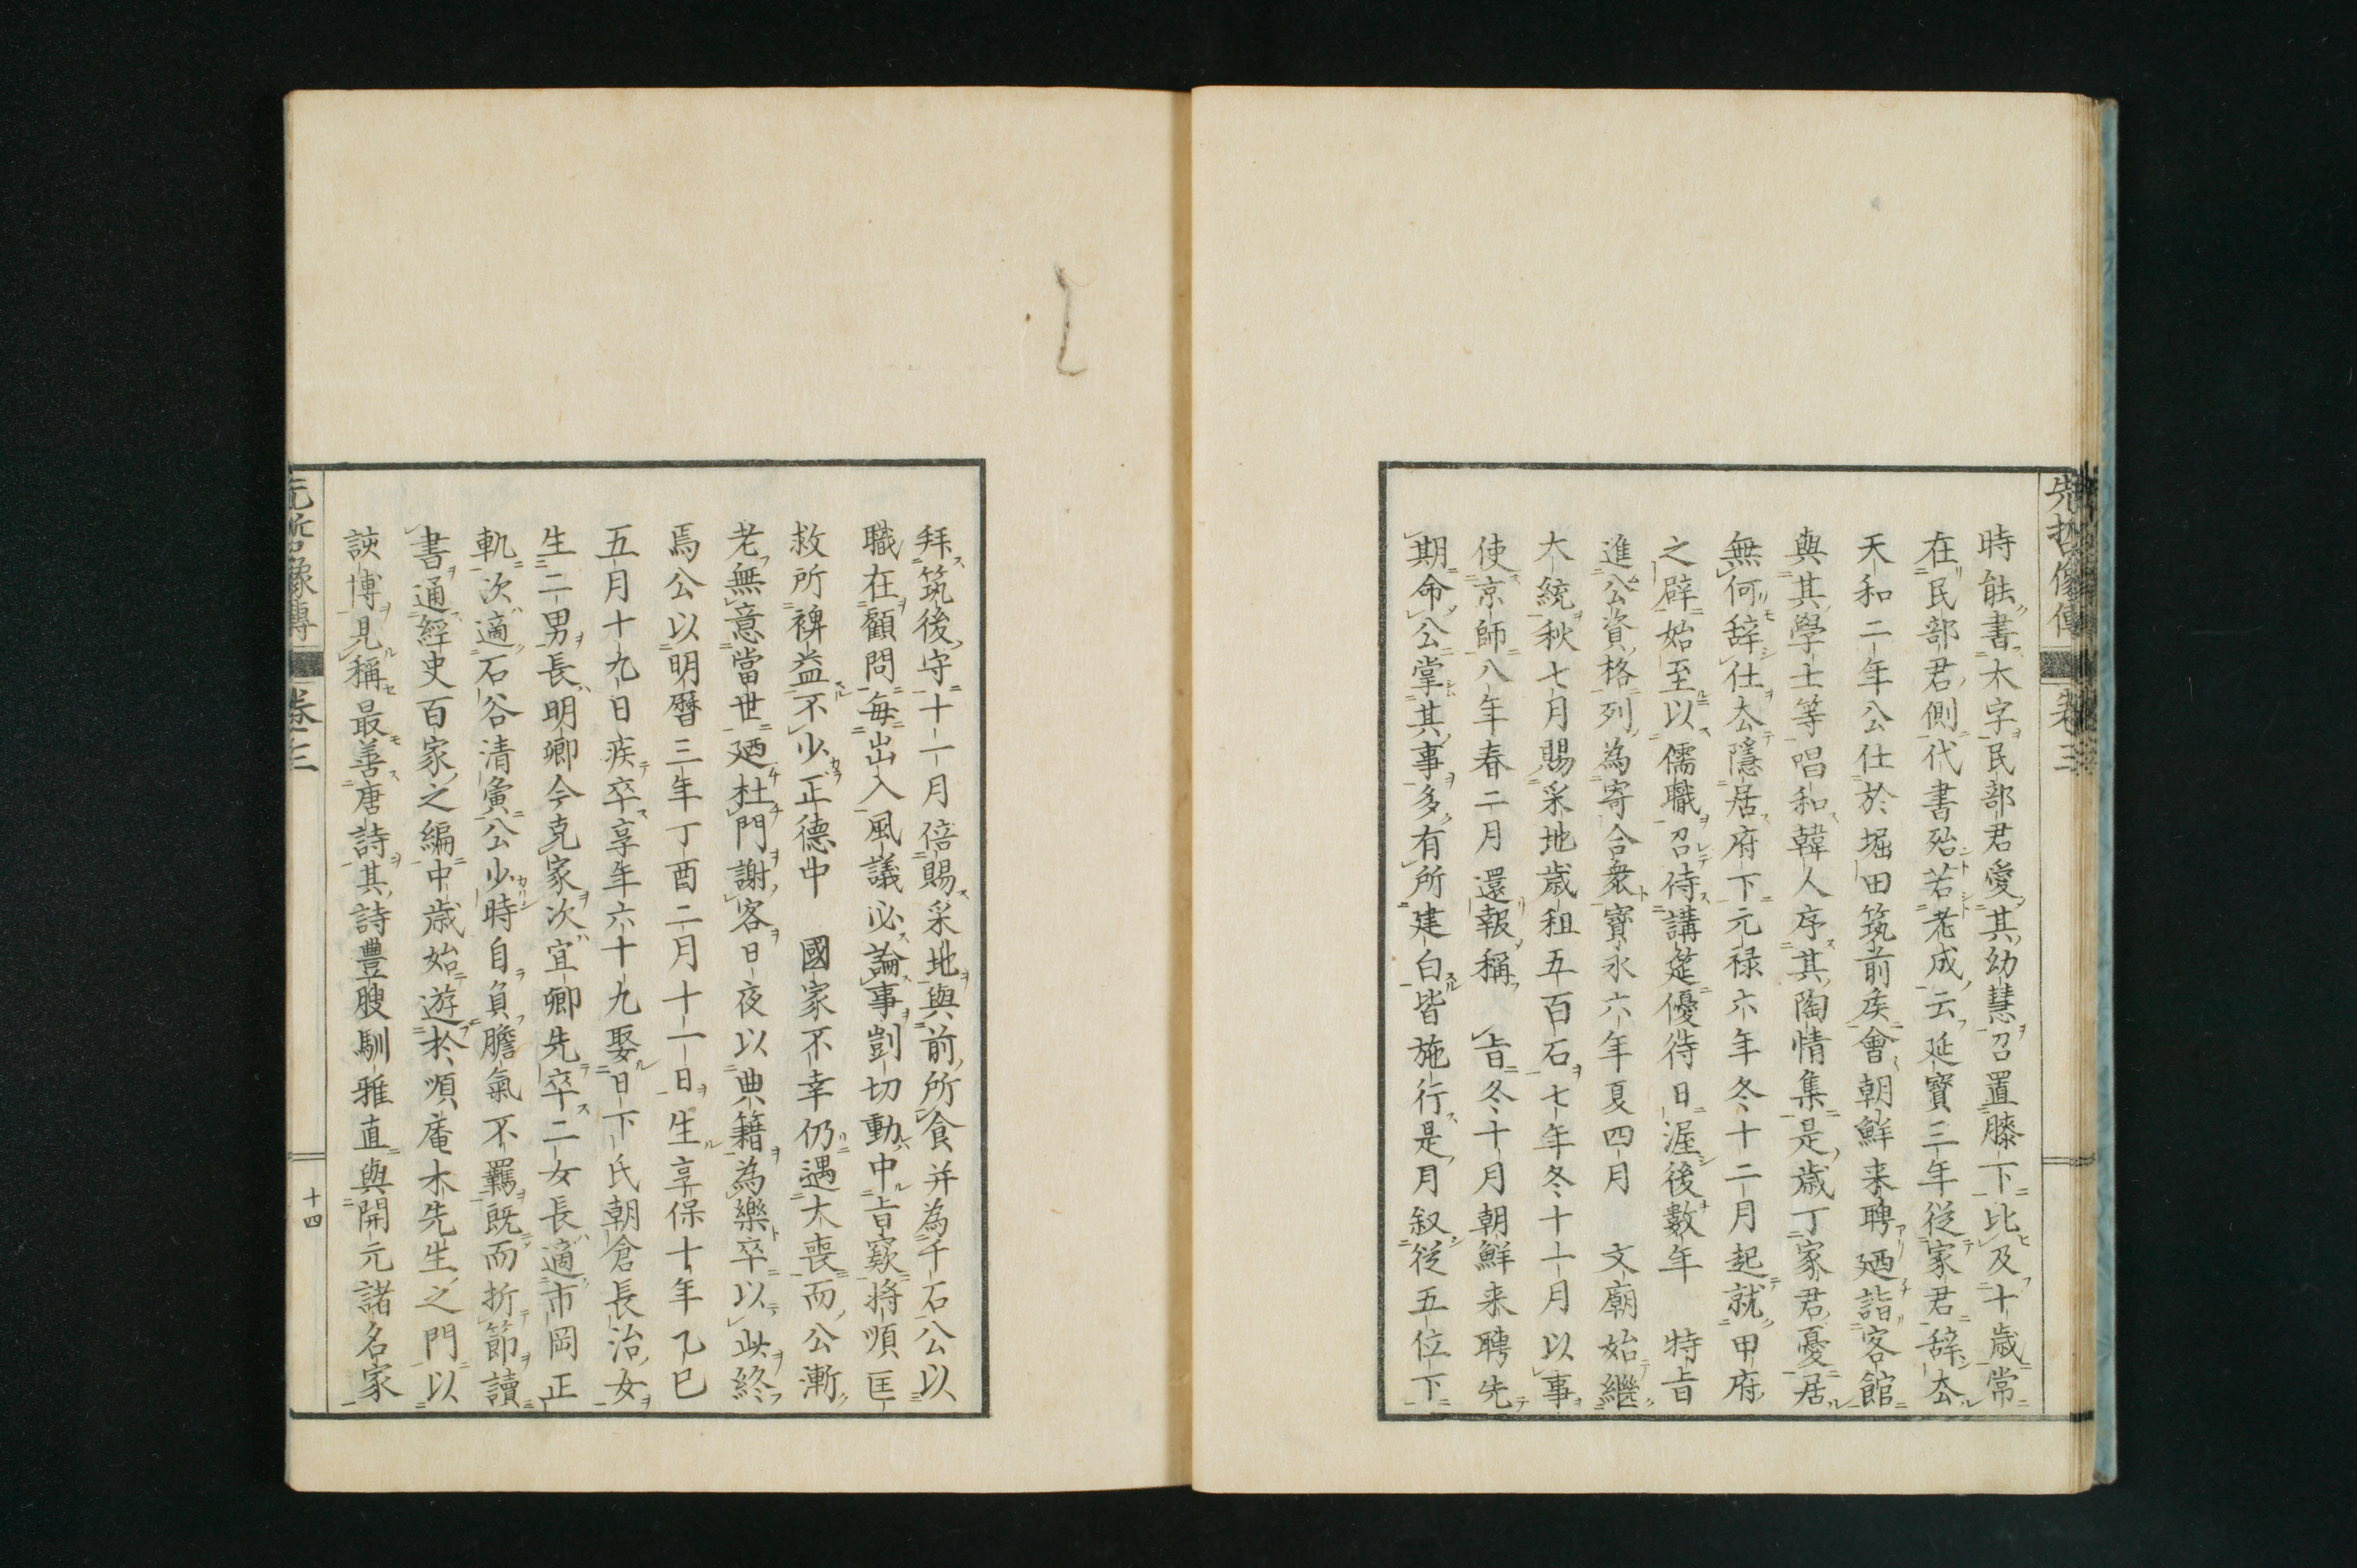 先哲像傳　卷三
時能書大字民部君愛其幼慧召置膝下比及十歳常
在民部君側代書殆若老成云延寶三年從家君辞去
天和二年公仕於堀田筑前矦會朝鮮来聘廼詣客館
與其學士等唱和韓人序其陶情集是歳丁家君憂居
無何辞仕去隱居府下元禄六年冬十二月起就甲府
之辟始至以儒職召侍講筵優待日渥後數年　特旨
進公資格列為寄合衆寳永六年夏四月　文廟始継
大統秋七月賜采地歳租五百石七年冬十一月以事
使京師八年春二月還報稱　旨冬十月朝鮮来聘先
期命公掌其事多有所建白皆施行是月叙從五位下
拜筑後守十一月倍賜采地與前所食并為千石公以
職在顧問毎出入風議必論事剴切動中旨窾将順匡
救所裨益不少正德中　國家不幸仍遇大喪而公漸
老無意當世廼杜門謝客日夜以典籍為樂卒以此終
焉公以明曆三年丁酉二月十一日生享保十年乙巳
五月十九日疾卒享年六十九娶日下氏朝倉長治女
生二男長明卿今克家次宜卿先卒二女長適市岡正
軌次適石谷清寅公少時自負膽氣不羈既而折節讀
書通經史百家之編中歳始遊於順庵木先生之門以
諛博見稱最善唐詩其詩豐腴馴雅直與開元諸名家
先哲像傳　卷三　十四